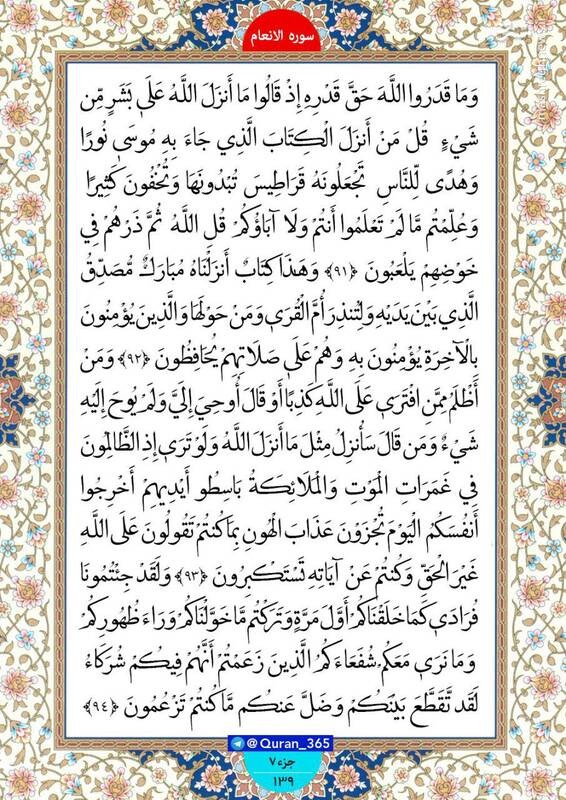 سوره الانعام
وَمَا قَدَرُوا اللَّهَ حَقَّ قَدْرِهِ إِذْ قَالُوا مَا أَنزَلَ اللَّهُ عَلَىٰ بَشَرٍ مِّن
شَيْءٍ قُلْ مَنْ أَنزَلَ الْكِتَابَ الَّذِي جَاءَ بِهِ مُوسَىٰ نُورًا
وَهُدًى لِّلنَّاسِ تَجْعَلُونَهُ قَرَاطِيسَ تُبْدُونَهَا وَتُخْفُونَ كَثِيرًا
وَعُلِّمْتُم مَّا لَمْ تَعْلَمُوا أَنتُمْ وَلَا آبَاؤُكُمْ قُلِ اللَّهُ ثُمَّ ذَرْهُمْ فِي
خَوْضِهِمْ يَلْعَبُونَ ﴿٩١﴾ وَهَذَا كِتَابٌ أَنزَلْنَاهُ مُبَارَكٌ مُّصَدِّقُ
الَّذِي بَيْنَ يَدَيْهِ وَلِتُنذِرَ أُمَّ الْقُرَىٰ وَمَنْ حَوْلَهَا وَالَّذِينَ يُؤْمِنُونَ
بِالْآخِرَةِ يُؤْمِنُونَ بِهِ وَهُمْ عَلَىٰ صَلَاتِهِمْ يُحَافِظُونَ ﴿٩٢﴾ وَمَنْ
أَظْلَمُ مِمَّنِ افْتَرَىٰ عَلَى اللَّهِ كَذِبًا أَوْ قَالَ أُوحِيَ إِلَيَّ وَلَمْ يُوحَ إِلَيْهِ
شَيْءٌ وَمَن قَالَ سَأُنزِلُ مِثْلَ مَا أَنزَلَ اللَّهُ وَلَوْ تَرَىٰ إِذِ الظَّالِمُونَ
فِي غَمَرَاتِ الْمَوْتِ وَالْمَلَائِكَةُ بَاسِطُو أَيْدِيهِمْ أَخْرِجُوا
أَنفُسَكُمُ الْيَوْمَ تُجْزَوْنَ عَذَابَ الْهُونِ بِمَا كُنتُمْ تَقُولُونَ عَلَى اللَّهِ
غَيْرَ الْحَقِّ وَكُنتُمْ عَنْ آيَاتِهِ تَسْتَكْبِرُونَ ﴿٩٣﴾ وَلَقَدْ جِئْتُمُونَا
فُرَادَىٰ كَمَا خَلَقْنَاكُمْ أَوَّلَ مَرَّةٍ وَتَرَكْتُم مَّا خَوَّلْنَاكُمْ وَرَاءَ ظُهُورِكُمْ
وَمَا نَرَىٰ مَعَكُمْ شُفَعَاءَكُمُ الَّذِينَ زَعَمْتُمْ أَنَّهُمْ فِيكُمْ شُرَكَاءُ
لَقَد تَّقَطَّعَ بَيْنَكُمْ وَضَلَّ عَنكُم مَّا كُنتُمْ تَزْعُمُونَ ﴿٩٤﴾
@Quran_365
جزء ٧
١٣٩